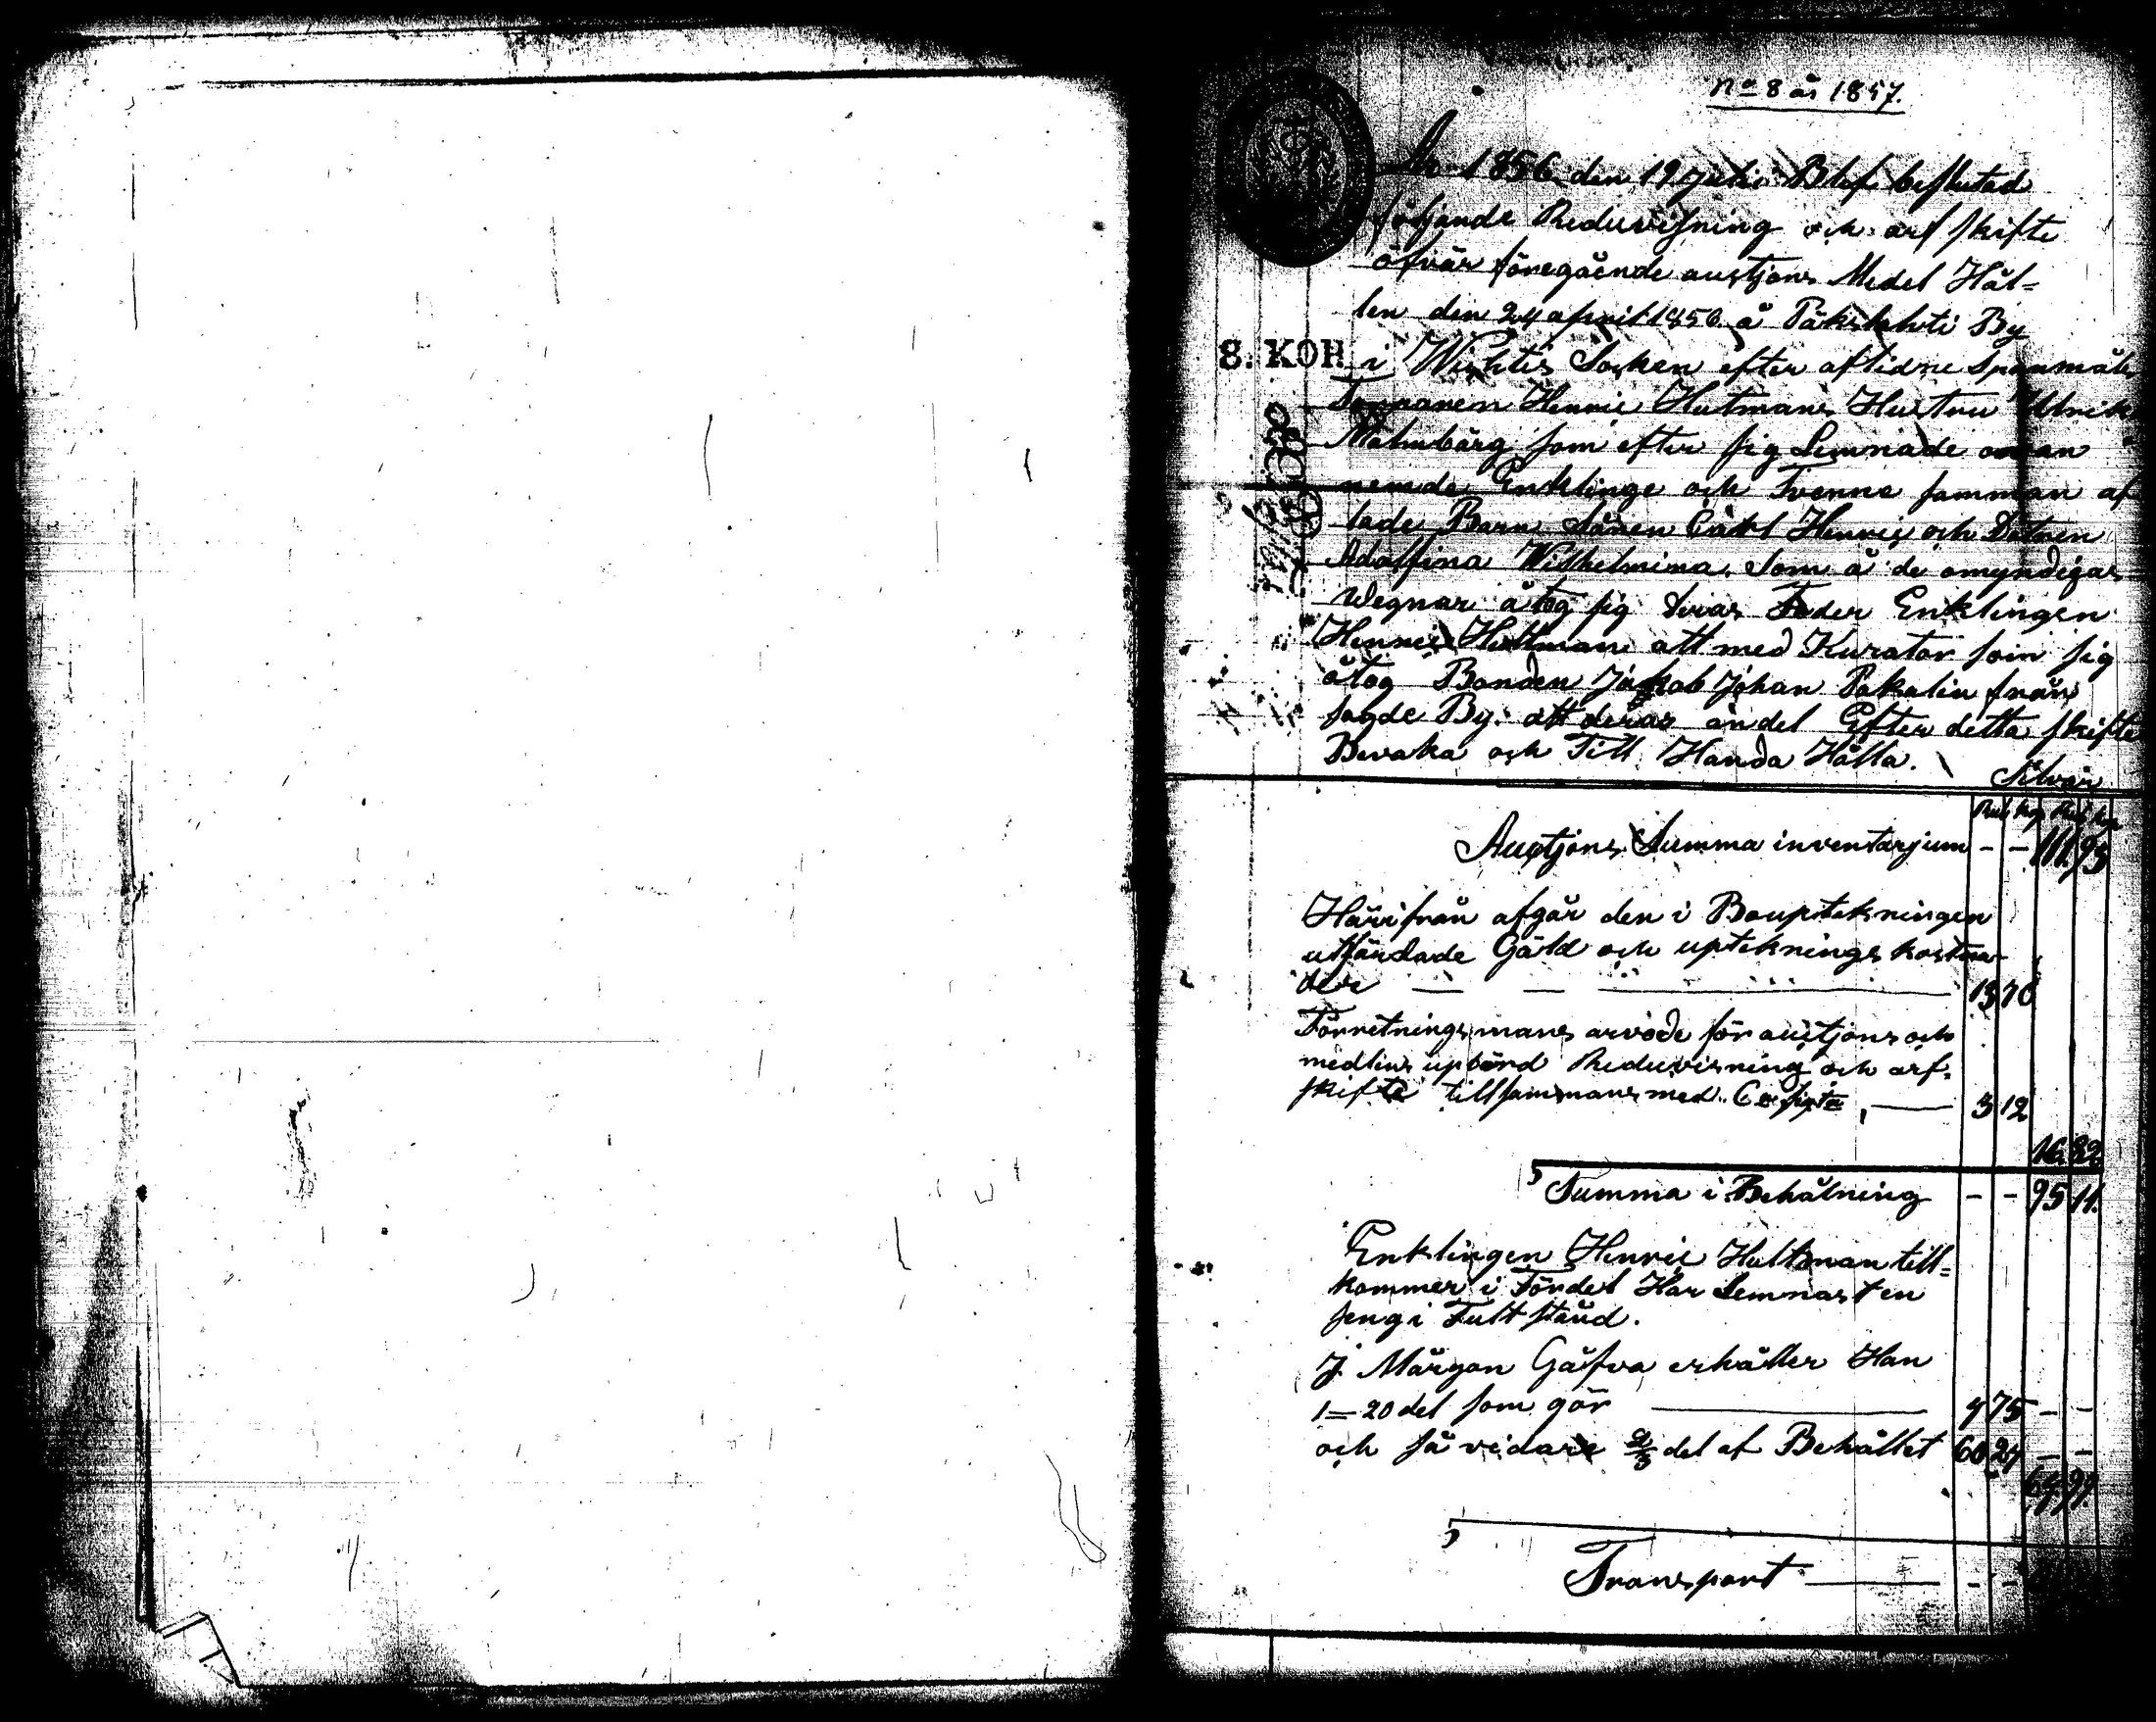 No 8 år 1857.
År 1856 den 19 Julii Blef beslutad
följande Reduvisning och arf skifte
öfvär föregående austjons Medel Hål=
len den 24 april 1856 å Päkslahti By
8. KOP. i Wichtis Socken efter aflidne Spanmåls
Torparen Henric Hutmans Hustru Ulrik
Malmbärg som efter sig Lemnade ovan
nemde Enklinge och Tvenne samman af
lade Barn Sånen Carl Henric och Dotren
Adolfina Wilhelmina. Som å de omyndigas
Wegnar åtog sig deras Fader Enklingen
Henric Hultman att med Kurator som sig
åtog Bonden Jakob Johan Pakalin från
sagde By. att deras andel Efter detta skifte
Bevaka och Till Handa Hålla.
Silvär
Rub kop Rub kop
Auctjons Summa inventarjum - - 111 93
Härifrån afgår den i Bouptekningen
utfärdade Gäld och uptekningskostna
der 13 70
Förretningsmans arvode för auctjons och
medlens upbörd Reduvisning och arf-
skifte tillsammans med 3 12
16 82
Summa i Behålning - - 95 11.
Enklingen Henric Hultman till=
kommer i Fördel Har Lemnast en
seng i Fult stånd.
J Märgon Gåfva erhåller Han
1=20 del som gör 4 75 - -
och så vidare 2/3 del af Behållet 60 24 - -
64 99
Transport - -